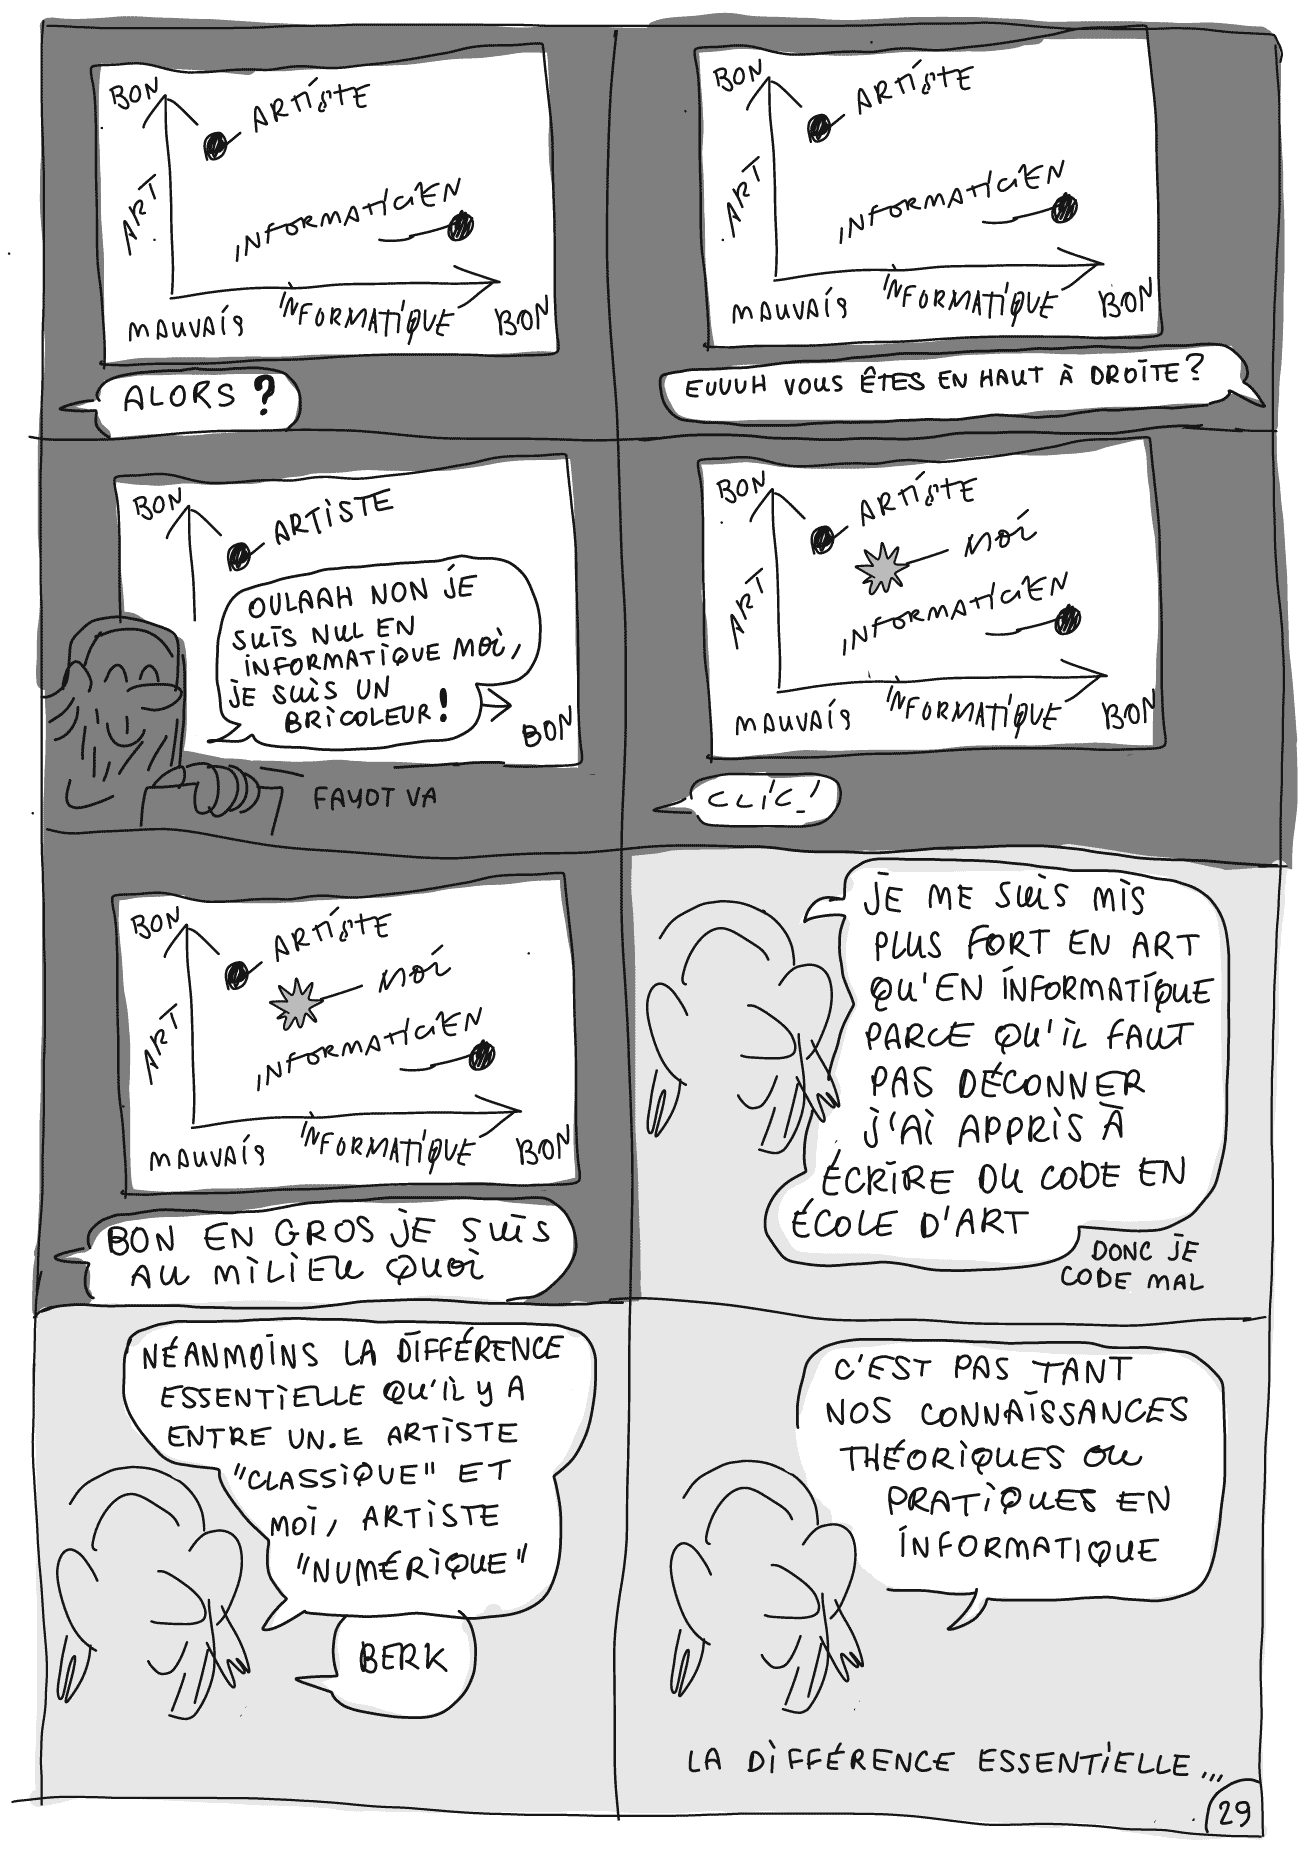 BON
ARTISTE
ART
INFORMATICIEN
MAUVAIS
INFORMATIQUE
BON
ALORS ?
BON
ARTISTE
ART
INFORMATICIEN
MAUVAIS
INFORMATIQUE
BON
EUUUH VOUS ÊTES EN HAUT À DROITE ?
BON
ARTISTE
OULAAH NON JE
SUIS NUL EN
INFORMATIQUE MOI,
JE SUIS UN
BRICOLEUR !
BON
FAYOT VA
BON
ARTISTE
MOI
ART
INFORMATICIEN
MAUVAIS
INFORMATIQUE
BON
CLIC !
BON
ARTISTE
MOI
ART
INFORMATICIEN
MAUVAIS
INFORMATIQUE
BON
BON EN GROS JE SUIS
AU MILIEU QUOI
JE ME SUIS MIS
PLUS FORT EN ART
QU'EN INFORMATIQUE
PARCE QU'IL FAUT
PAS DÉCONNER
J'AI APPRIS À
ÉCRIRE DU CODE EN
ÉCOLE D'ART
DONC JE
CODE MAL
NÉANMOINS LA DIFFÉRENCE
ESSENTIELLE QU'IL Y A
ENTRE UN.E ARTISTE
"CLASSIQUE" ET
MOI, ARTISTE
"NUMÉRIQUE"
BERK
C'EST PAS TANT
NOS CONNAISSANCES
THÉORIQUES OU
PRATIQUES EN
INFORMATIQUE
LA DIFFÉRENCE ESSENTIELLE...
29